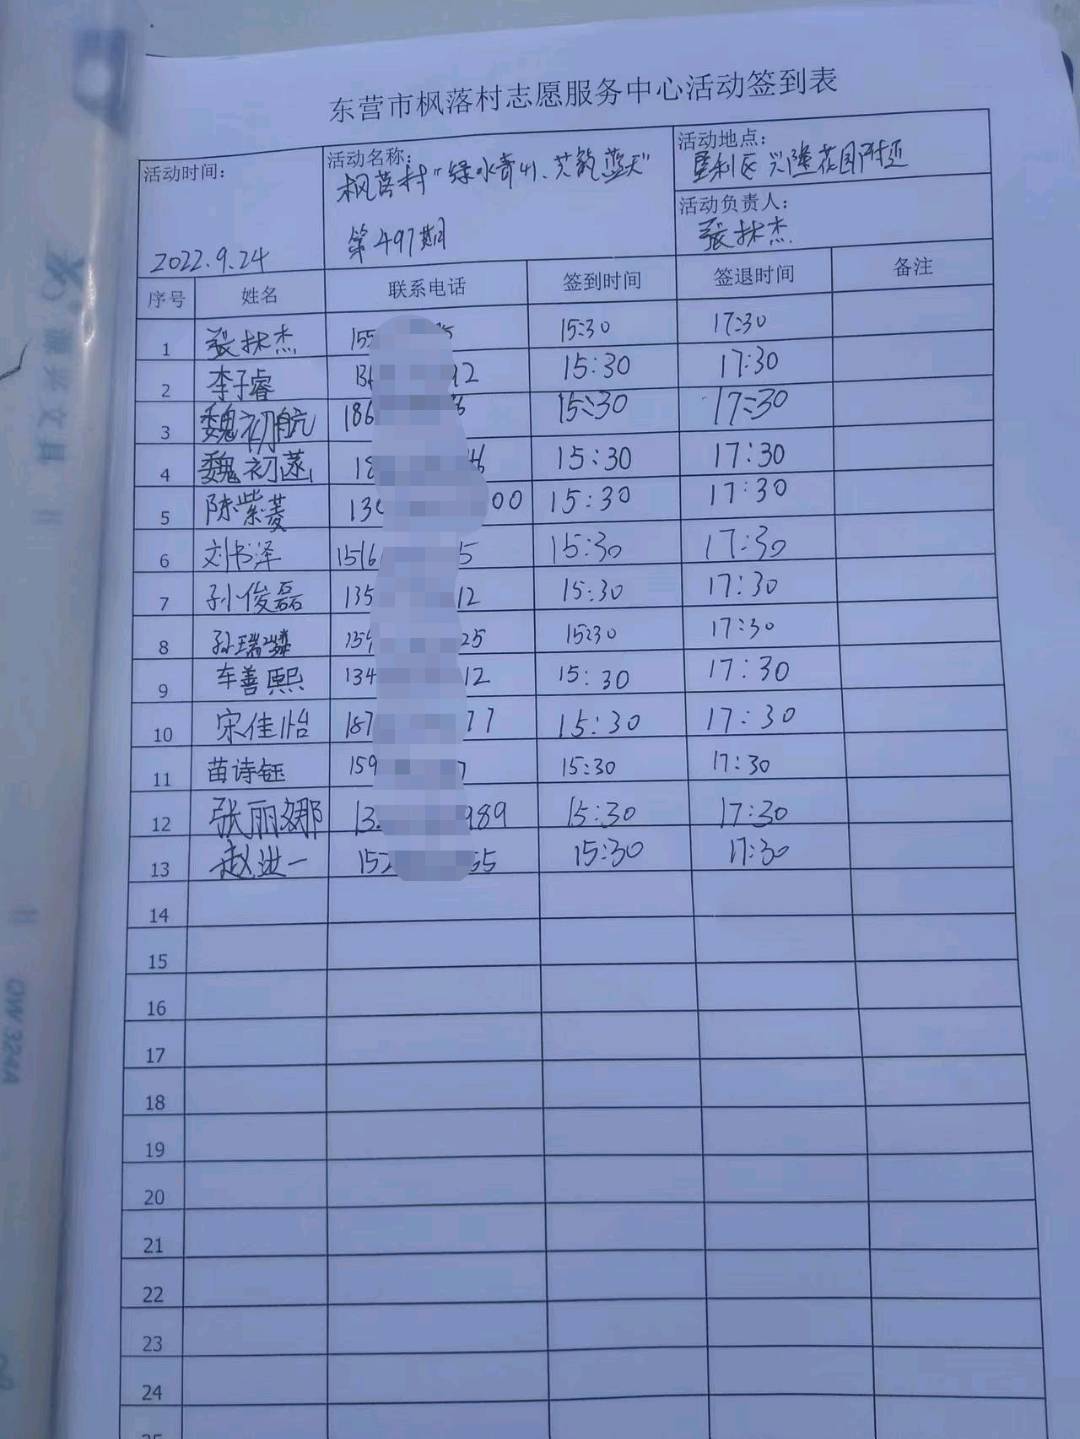 东营市枫落村志愿服务中心活动签到表
活动时间:
2022.9.24
活动名称:
枫落村"绿水青山、共筑蓝天"
第497期
活动地点:
垦利区兴隆花园附近
活动负责人:
张林杰
序号 姓名 联系电话 签到时间 签退时间 备注
1 张林杰 155 5 15:30 17:30
2 李子睿 92 15:30 17:30
3 魏初航 186 15:30 17:30
4 魏初 18 15:30 17:30
5 陈紫菱 13 00 15:30 17:30
6 刘书泽 1516 5 15:30 17:30
7 孙俊磊 135 12 15:30 17:30
8 孙瑞麟 159 25 15:30 17:30
9 车善熙 134 12 15:30 17:30
10 宋佳怡 187 77 15:30 17:30
11 苗诗钰 159 7 15:30 17:30
12 张丽娜 13 989 15:30 17:30
13 赵洪一 152 55 15:30 17:30
14
15
16
17
18
19
20
21
22
23
24
25
文具
OW324A